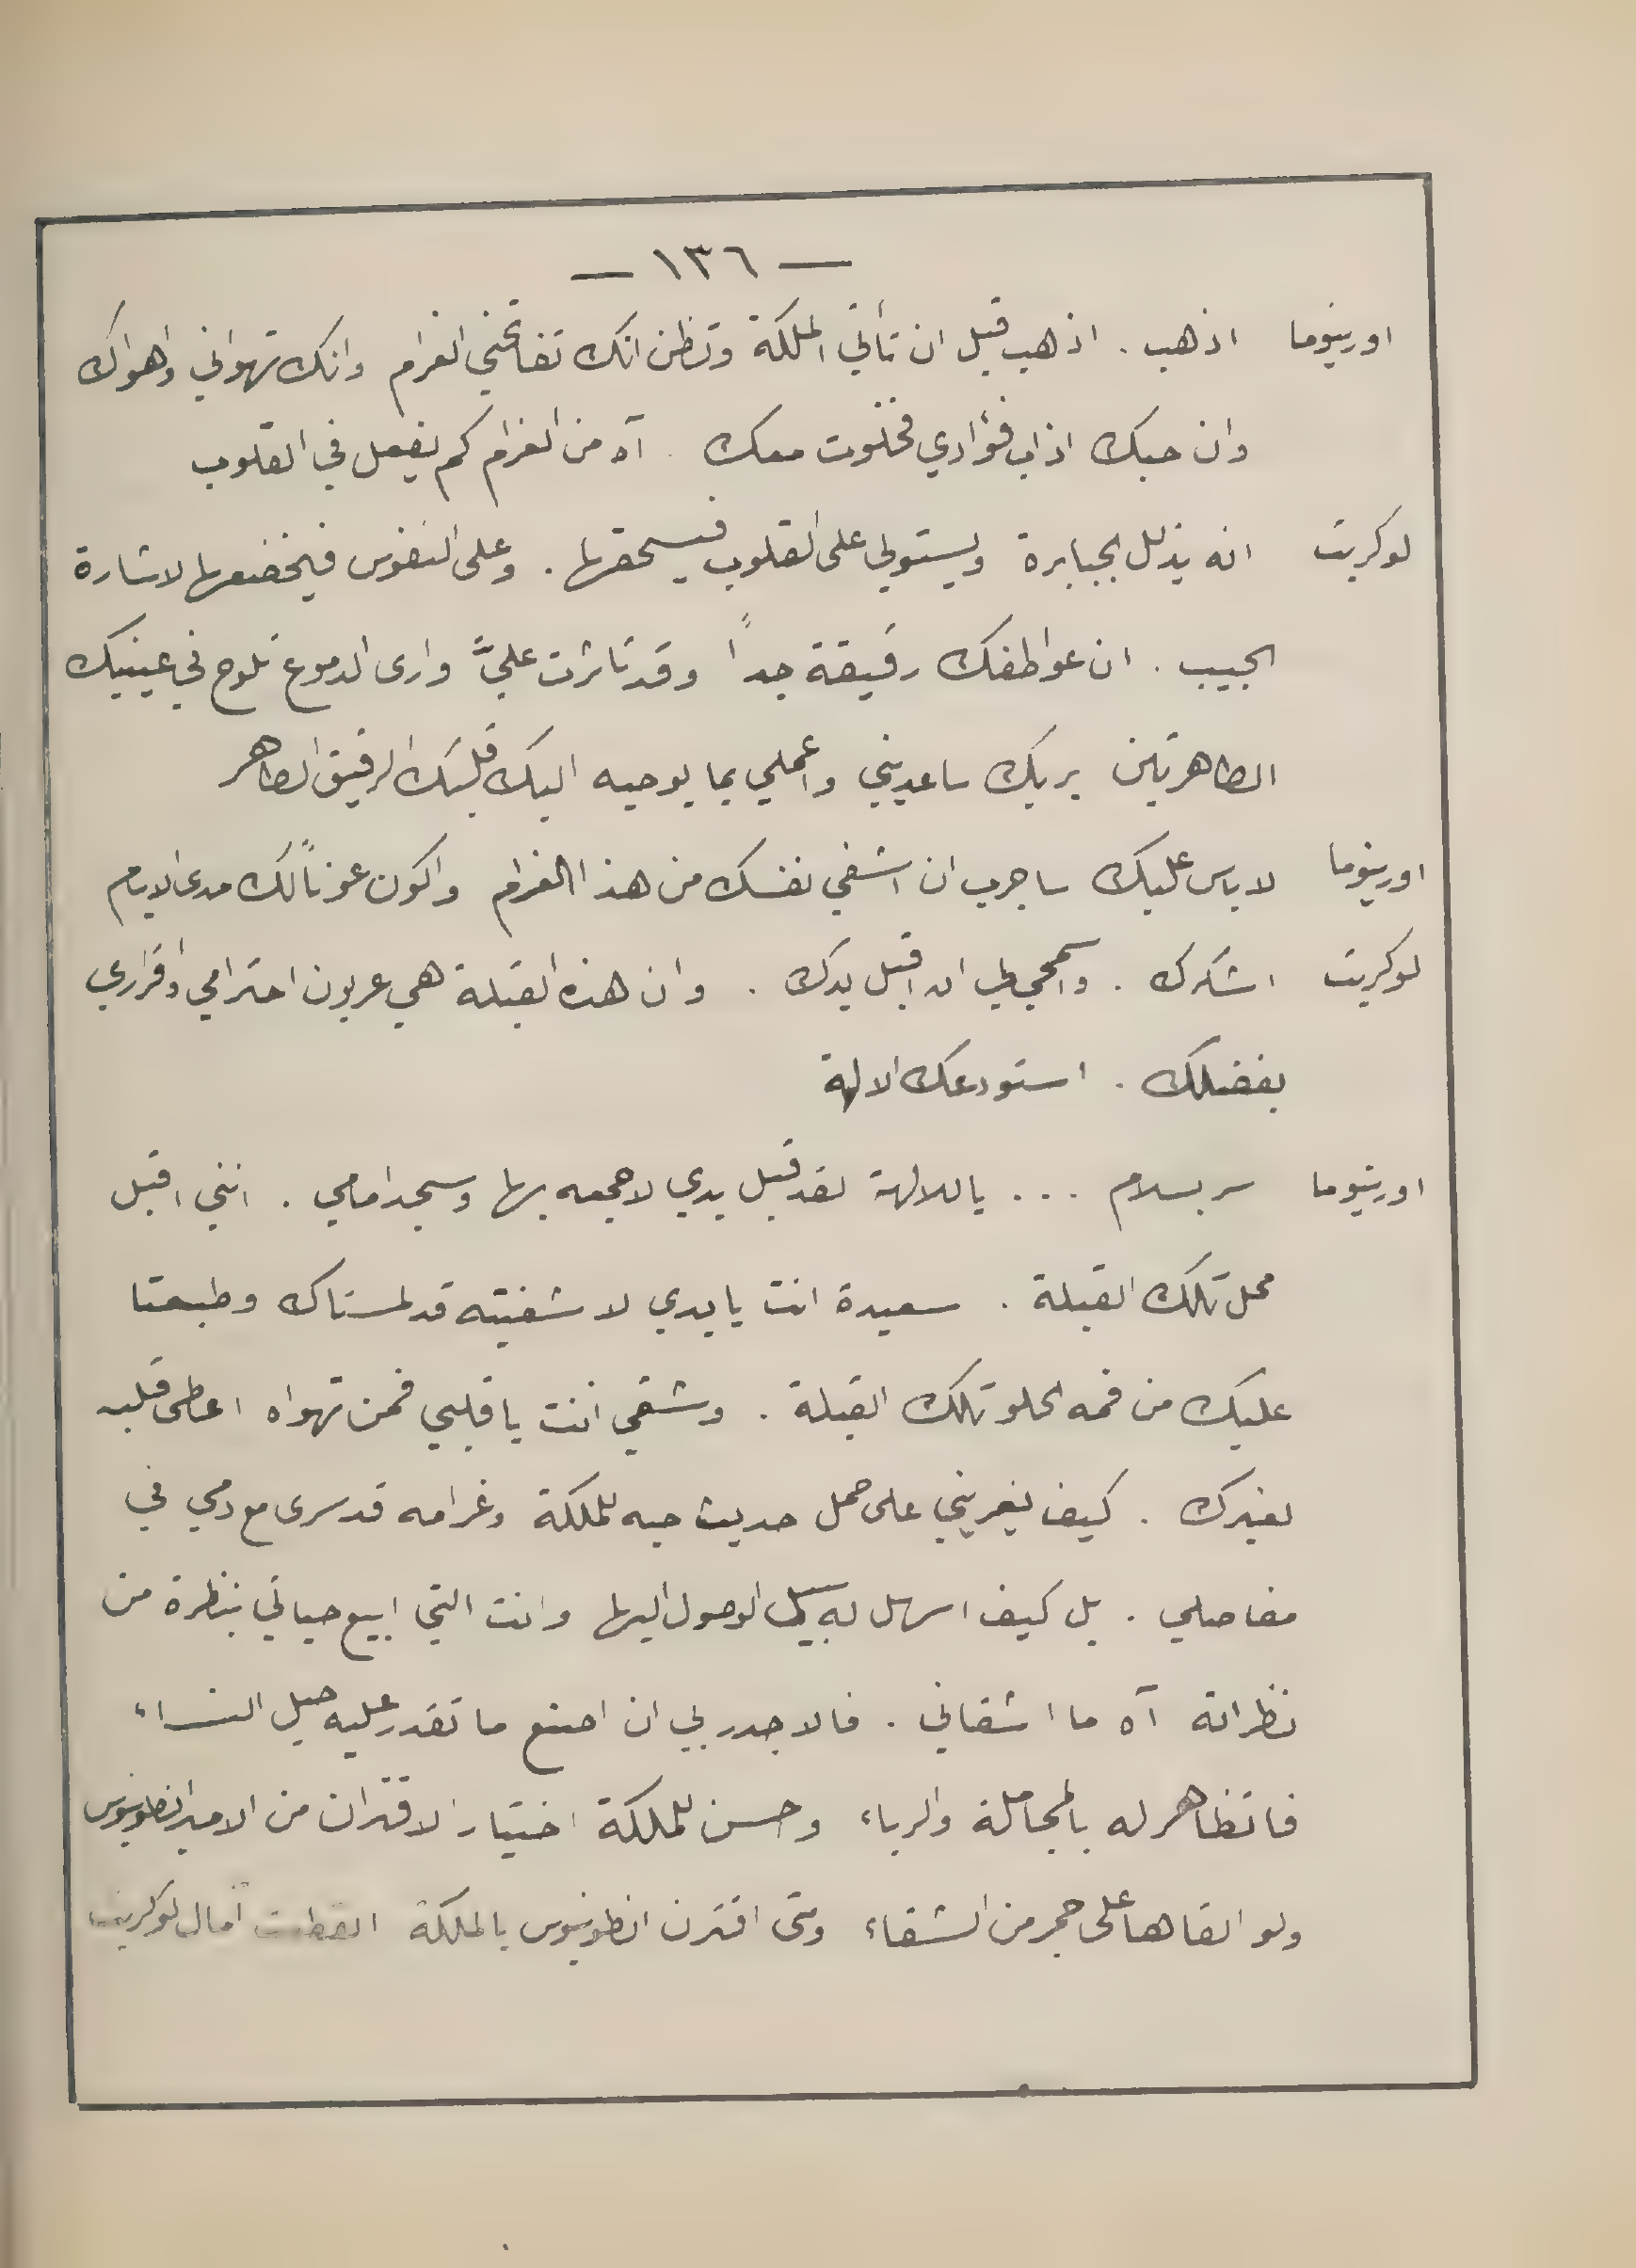 — ١٣٦ —
اورينوما اذهب . اذهب قبل ان تأتي الملكة وتظن انك تفاتحني الغرام وانك تهواني واهواك
وان حبك اذاب فؤادي فخلوت معك . آه من الغرام كم يفعل في القلوب
لوكريت انه يذلل الجبابرة ويستولي على القلوب فيسحقها . وعلى النفوس فيخضعها لاشارة
الحبيب . ان عواطفك رقيقة جداً وقد تاثرت عليَّ وارى الدموع تلوح في عينيك
الطاهرتين بربك ساعديني واعملي بما يوحيه اليك قلبك الرقيق الطاهر
اورينوما لا باس عليك ساجرب ان اشفي نفسك من هذا الغرام واكون عوناً لك مدى الايام
لوكريت اشكرك . واسمحي لي ان اقبل يدك . وان هذه القبلة هي عربون احترامي واقراري
بفضلك . استودعك الالهة
اورينوما سر بسلام ... يا للالهة لقد قبل يدي لاجمعه بها وسجد امامي . انني اقبل
محل تلك القبلة . سعيدة انت يا يدي لا شفتيه قد لمستاك وطبعتا
عليك من فمه الحلو تلك القبلة . وشقي انت يا قلبي فمن تهواه اعطى قلبه
لغيرك . كيف يغريني على حمل حديث حبه للملكة وغرامه قد سرى مع دمي في
مفاصلي . بل كيف اسهل له سبيل الوصول اليها وانت التي ابيع حياتي بنظرة من
نظراته آه ما اشقاني . فالاجدر بي ان اصنع ما تقدر عليه حيل النساء
فاتظاهر له بالمجاملة والرياء وحسن للملكة اختيار الاقتران من الامير انطونيوس
ولو القاها على حجر من الشقاء ومتى اقترن انطونيوس بالملكة انقطعت آمال لوكريت